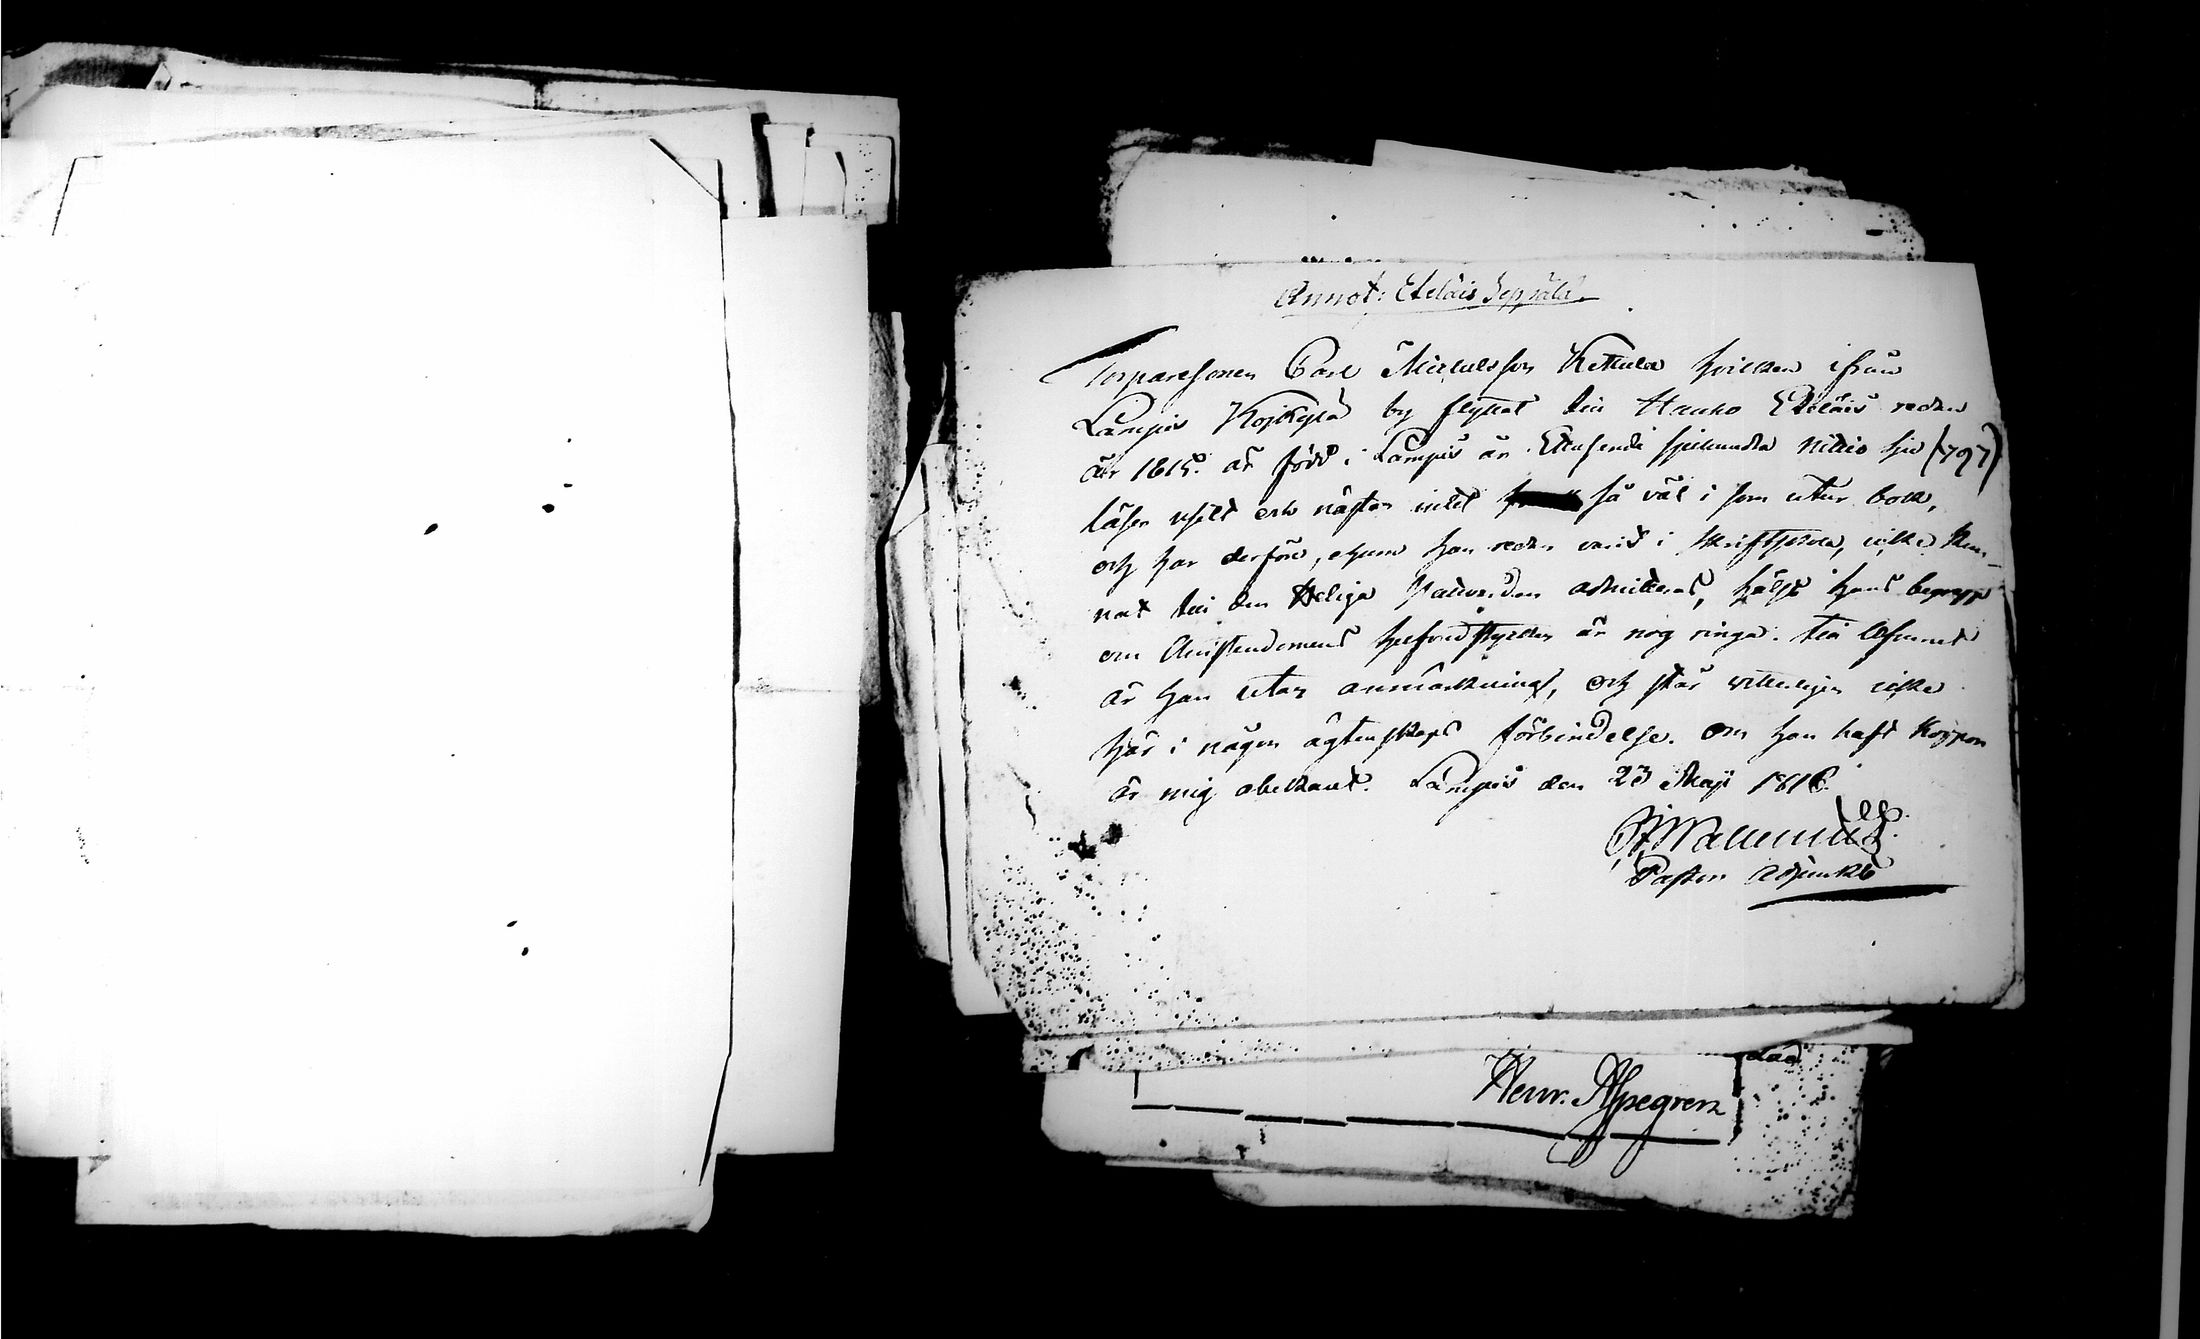 Annot: Eteläis Seppälä.
Torparesonen Carl Michelsson Kettula hvilken ifrån
Lampis Kojskylä by flyttat till Hauho Eteläis redan
år 1815. är född i Lampis år Ettusende sjuhundra nittio sju (797)
läser uselt och nästan intet så väl i som utur bok,
och har derföre, ehuru han redan varit i skriftskola, icke kun-
nat till den Heliga Nattvarden admitteras, hälst hans begrepp
om Christendomens hufvudstycken är nog ringa. till lefvernet
är han utan anmärkning, och står vitterligen icke
här i någon ägtenskaps förbindelse. Om han haft koppor
är mig obekant. Lampis den 23 Maji 1816.
Pastors Adjunkt
Henr. Aspegren